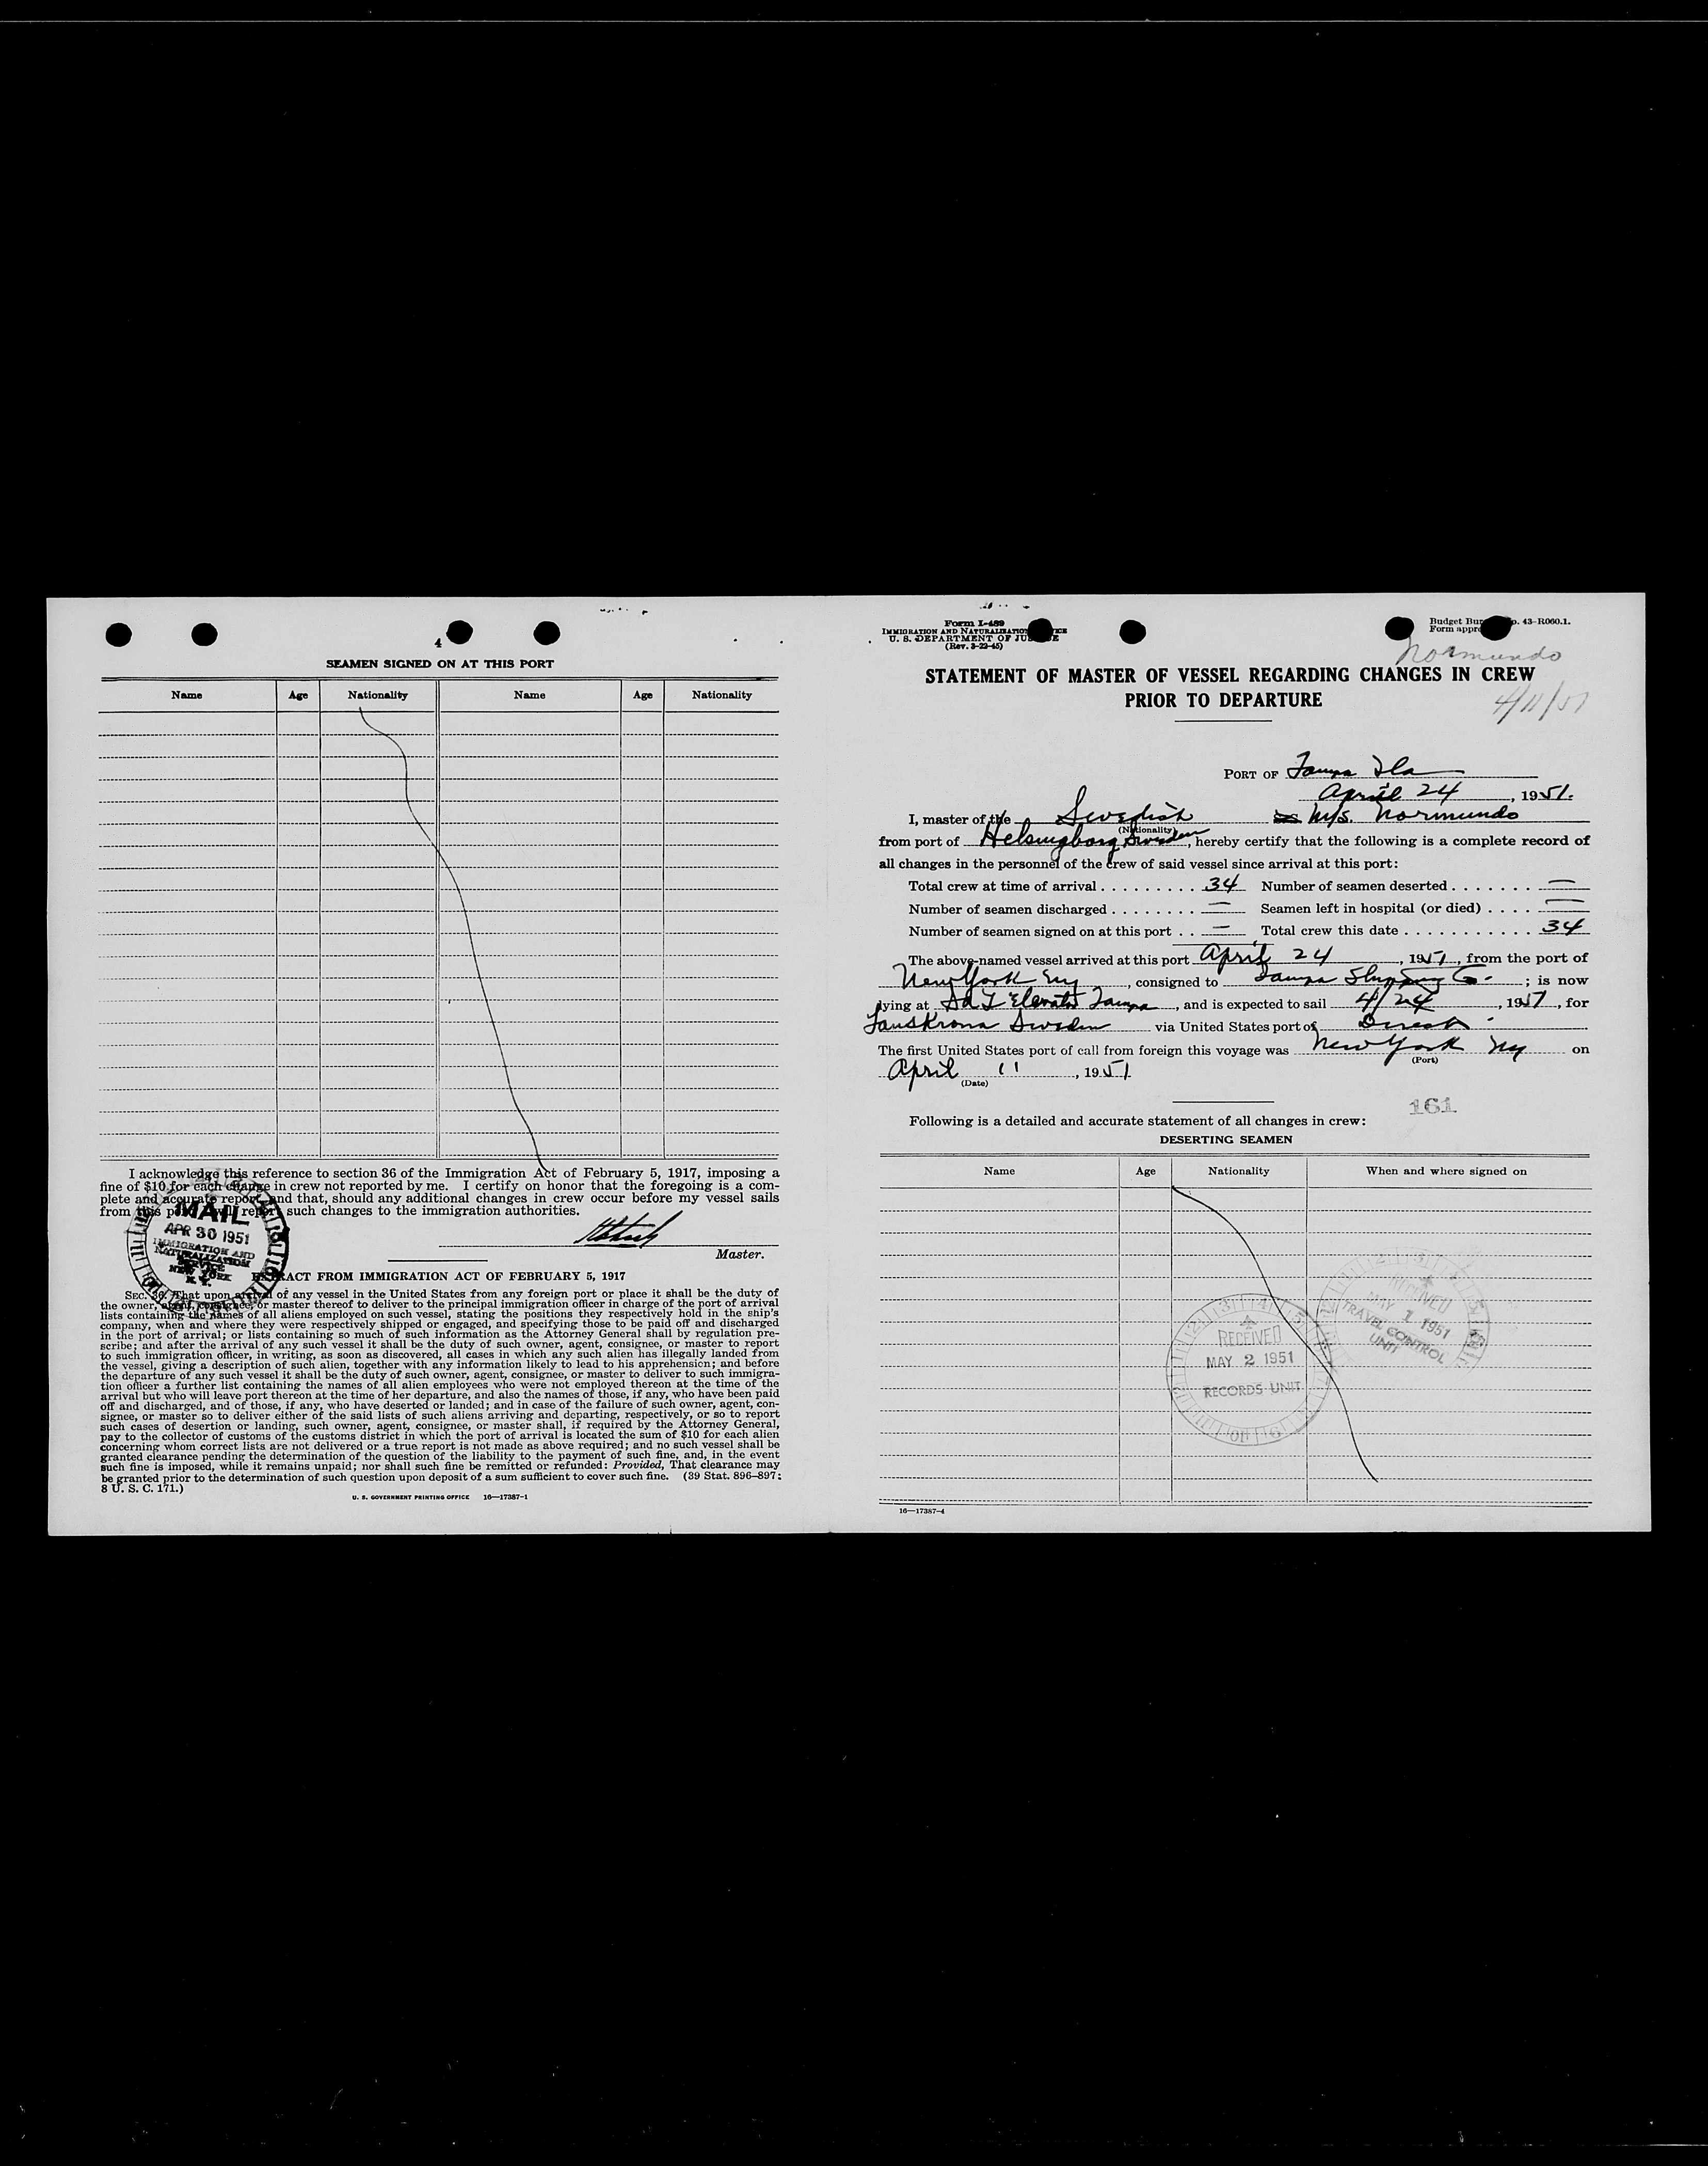 4
SEAMEN SIGNED ON AT THIS PORT
Name Age Nationality Name Age Nationality
I acknowledge this reference to section 36 of the Immigration Act of February 5, 1917, imposing a
fine of $10 for each change in crew not reported by me. I certify on honor that the foregoing is a com-
plete and accurate report and that, should any additional changes in crew occur before my vessel sails
from this port, I will report such changes to the immigration authorities.
Master.
MAIL
APR 30 1951
IMMIGRATION AND
NATURALIZATION
SERVICE
NEW YORK
N. Y.
EXTRACT FROM IMMIGRATION ACT OF FEBRUARY 5, 1917
SEC. 36. That upon arrival of any vessel in the United States from any foreign port or place it shall be the duty of
the owner, agent, consignee, or master thereof to deliver to the principal immigration officer in charge of the port of arrival
lists containing the names of all aliens employed on such vessel, stating the positions they respectively hold in the ship's
company, when and where they were respectively shipped or engaged, and specifying those to be paid off and discharged
in the port of arrival; or lists containing so much of such information as the Attorney General shall by regulation pre-
scribe; and after the arrival of any such vessel it shall be the duty of such owner, agent, consignee, or master to report
to such immigration officer, in writing, as soon as discovered, all cases in which any such alien has illegally landed from
the vessel, giving a description of such alien, together with any information likely to lead to his apprehension; and before
the departure of any such vessel it shall be the duty of such owner, agent, consignee, or master to deliver to such immigra-
tion officer a further list containing the names of all alien employees who were not employed thereon at the time of the
arrival but who will leave port thereon at the time of her departure, and also the names of those, if any, who have been paid
off and discharged, and of those, if any, who have deserted or landed; and in case of the failure of such owner, agent, con-
signee, or master so to deliver either of the said lists of such aliens arriving and departing, respectively, or so to report
such cases of desertion or landing, such owner, agent, consignee, or master shall, if required by the Attorney General,
pay to the collector of customs of the customs district in which the port of arrival is located the sum of $10 for each alien
concerning whom correct lists are not delivered or a true report is not made as above required; and no such vessel shall be
granted clearance pending the determination of the question of the liability to the payment of such fine, and, in the event
such fine is imposed, while it remains unpaid; nor shall such fine be remitted or refunded: Provided, That clearance may
be granted prior to the determination of such question upon deposit of a sum sufficient to cover such fine. (39 Stat. 896–897;
8 U. S. C. 171.)
U. S. GOVERNMENT PRINTING OFFICE 16—17387-1
Form I-489
IMMIGRATION AND NATURALIZATION SERVICE
U. S. DEPARTMENT OF JUSTICE
(Rev. 3-22-45)
Budget Bureau No. 43-R060.1.
Form approved
Normundo
4/11/51
STATEMENT OF MASTER OF VESSEL REGARDING CHANGES IN CREW
PRIOR TO DEPARTURE
PORT OF Tampa Fla
April 24, 1951.
I, master of the Swedish M/S. Normundo
(Nationality)
from port of Helsingborg Sweden, hereby certify that the following is a complete record of
all changes in the personnel of the crew of said vessel since arrival at this port:
Total crew at time of arrival . . . . . . . . . 34 Number of seamen deserted . . . . . . . —
Number of seamen discharged . . . . . . . . — Seamen left in hospital (or died) . . . . —
Number of seamen signed on at this port . . — Total crew this date . . . . . . . . . . . 34
The above-named vessel arrived at this port April 24, 1951, from the port of
New York Ny, consigned to Tampa Shipping Co.; is now
lying at Elevator Tampa, and is expected to sail 4/24, 1951, for
Lanskrona Sweden via United States port of Direct
The first United States port of call from foreign this voyage was New York Ny on
(Port)
April 11, 1951
(Date)
161
Following is a detailed and accurate statement of all changes in crew:
DESERTING SEAMEN
Name Age Nationality When and where signed on
RECEIVED
MAY 1 1951
TRAVEL CONTROL
UNIT
RECEIVED
MAY 2 1951
RECORDS UNIT
16—17387-4